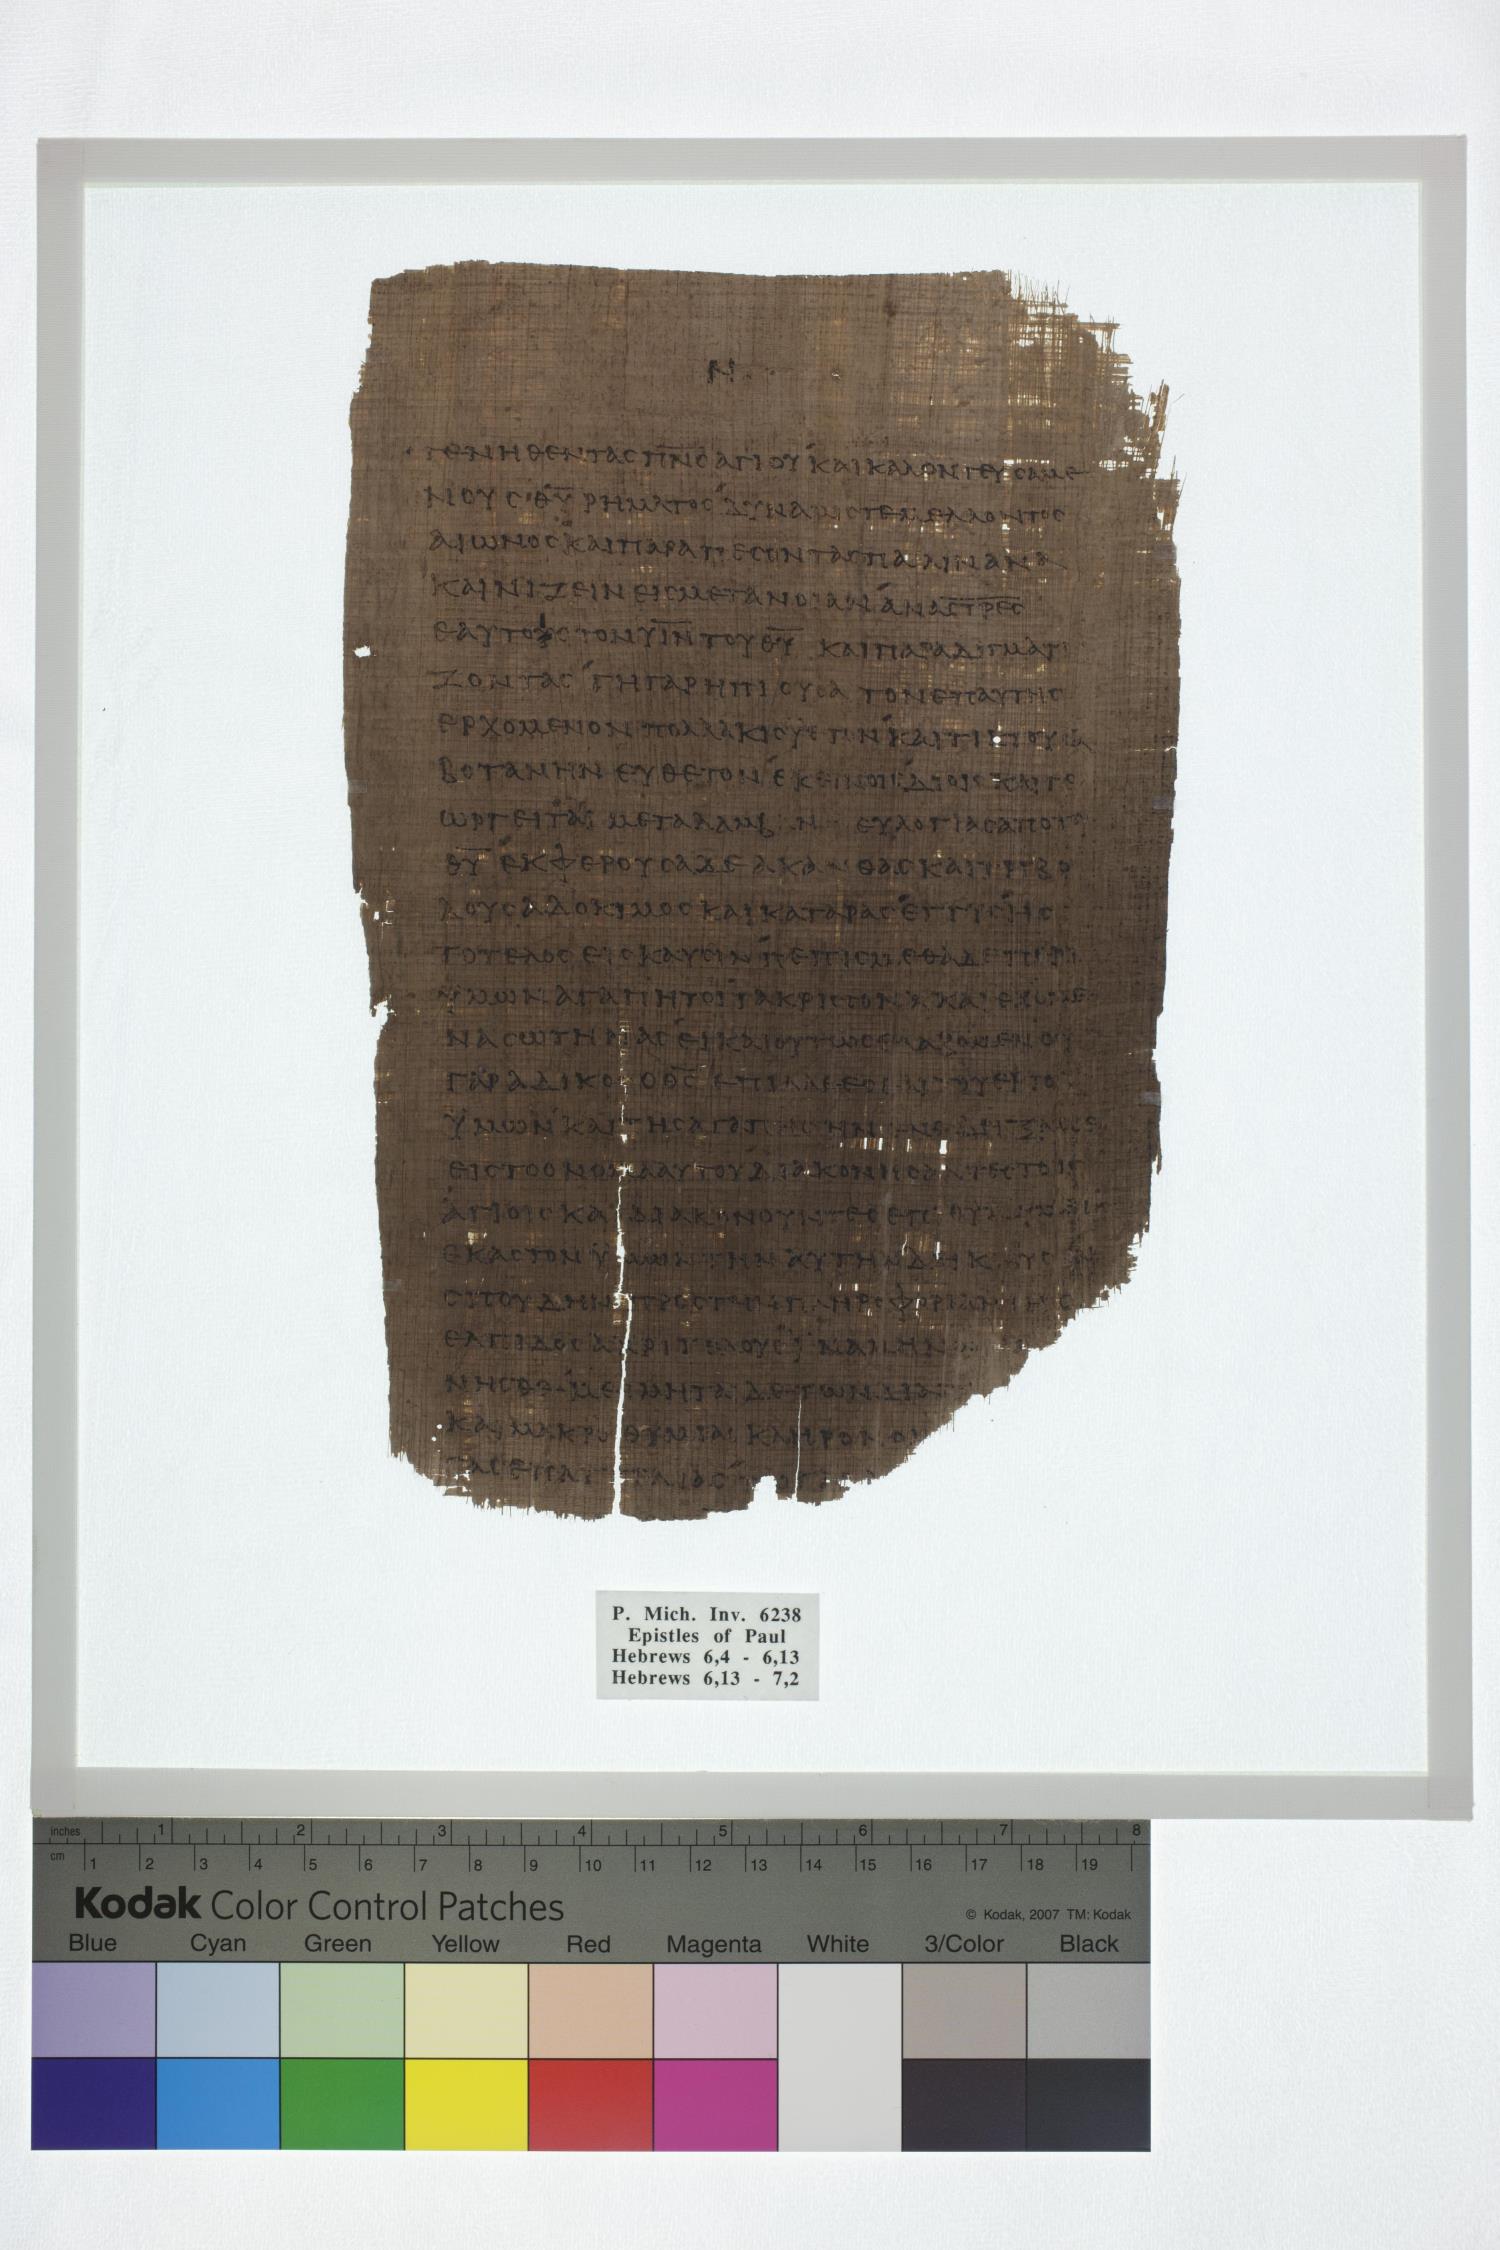 ΓΕΝΗΘΕΝΤΑΣ ΠΝΣ ΑΓΙΟΥ ΚΑΙ ΚΑΛΟΝ ΓΕΥΣΑΜΕ
ΝΟΥΣ ΘΥ ΡΗΜΑΤΟΣ ΔΥΝΑΜΙΣ ΤΕ ΜΕΛΛΟΝΤΟΣ
ΑΙΩΝΟΣ ΚΑΙ ΠΑΡΑΠΕΣΟΝΤΑΣ ΠΑΛΙΝ ΑΝΑ
ΚΑΙΝΙΖΕΙΝ ΕΙΣ ΜΕΤΑΝΟΙΑΝ ΑΝΑΣΤΡΕΣ
ΕΑΥΤΟΥΣ ΤΟΝ ΥΙΝ ΤΟΥ ΘΥ ΚΑΙ ΠΑΡΑΔΙΓΜΑΤΙ
ΖΟΝΤΑΣ ΓΗ ΓΑΡ Η ΠΙΟΥΣΑ ΤΟΝ ΕΠ ΑΥΤΗΣ
ΕΡΧΟΜΕΝΟΝ ΠΟΛΛΑΚΙΣ ΥΕΤΟΝ ΚΑΙ ΤΙΚΤΟΥΣΑ
ΒΟΤΑΝΗΝ ΕΥΘΕΤΟΝ ΕΚΕΙΝΟΙΣ ΔΙ ΟΙΣ ΚΑΙ ΓΕ
ΩΡΓΕΙΤΑΙ ΜΕΤΑΛΑΜΒ Ν ΕΥΛΟΓΙΑΣ ΑΠΟ ΤΟΥ
ΘΥ ΕΚΦΕΡΟΥΣΑ ΔΕ ΑΚΑΝΘΑΣ ΚΑΙ ΤΡΙΒΟ
ΛΟΥΣ ΑΔΟΚΙΜΟΣ ΚΑΙ ΚΑΤΑΡΑΣ ΕΓΓΥΣ ΗΣ
ΤΟ ΤΕΛΟΣ ΕΙΣ ΚΑΥΣΙΝ ΠΕΠΙΣΜΕΘΑ ΔΕ ΠΕΡΙ
ΥΜΩΝ ΑΓΑΠΗΤΟΙ ΤΑ ΚΡΙΣΣΟΝΑ ΚΑΙ ΕΧΟΜΕ
ΝΑ ΣΩΤΗΡΙΑΣ ΕΙ ΚΑΙ ΟΥΤΩΣ ΕΛΑΛΟΥΜΕΝ ΟΥ
ΓΑΡ ΑΔΙΚΟΣ Ο ΘΣ ΕΠΙΛΑΘΕΣΘΑΙ ΤΟΥ ΕΡΓΟΥ
ΥΜΩΝ ΚΑΙ ΤΗΣ ΑΓΑΠΗΣ ΗΝ
ΕΙΣ ΤΟ ΟΝΟΜΑ ΑΥΤΟΥ ΔΙΑΚΟΝΗΣΑΝΤΕΣ ΤΟΙΣ
ΑΓΙΟΙΣ ΚΑΙ ΔΙΑΚΟΝΟΥΝΤΕΣ
ΕΚΑΣΤΟΝ ΥΜΩΝ ΤΗΝ ΑΥΤΗΝ
ΣΠΟΥΔΗΝ ΠΡΟΣ ΤΗΝ ΠΛΗΡΟΦΟΡΙΑΝ ΤΗΣ
ΕΛΠΙΔΟΣ ΑΧΡΙ ΤΕΛΟΥΣ ΙΝΑ ΜΗ Ν
ΝΗΣΘΕ ΜΕΙΜΗΤΑΙ ΔΕ ΤΩΝ ΔΙΑ
ΚΑΙ ΜΑΚΡΟΘΥΜΙΑΣ ΚΛΗΡΟΝΟΜ
ΤΑΣ ΕΠΑΓΓΕΛΙΑΣ
P. Mich. Inv. 6238
Epistles of Paul
Hebrews 6,4 - 6,13
Hebrews 6,13 - 7,2
inches 1 2 3 4 5 6 7 8
cm 1 2 3 4 5 6 7 8 9 10 11 12 13 14 15 16 17 18 19
Kodak Color Control Patches
© Kodak, 2007 TM: Kodak
Blue Cyan Green Yellow Red Magenta White 3/Color Black